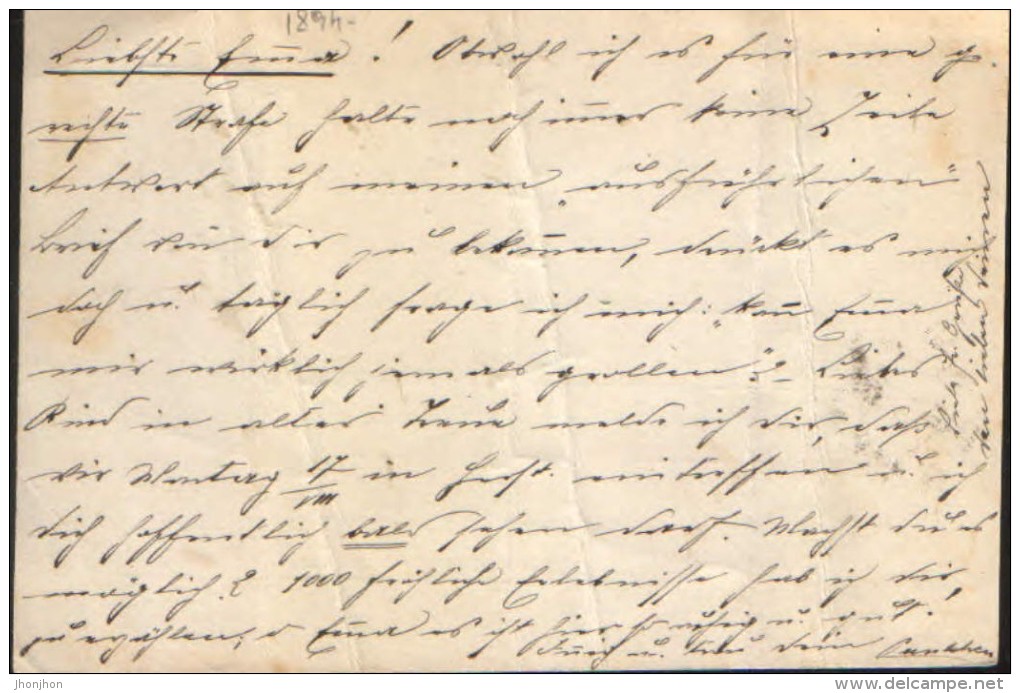 1894.
Liebste Emma! Obwohl ich es für eine ge-
rechte Strafe halte noch immer keine Zeile
Antwort auf meinen „ausführlichen"
Brief von dir zu bekommen, drückt es mich
doch u. täglich frage ich mich: „kann Emma
mir wirklich jemals grollen"? – Liebes
Kind in alter Treue melde ich dir, daß
wir Montag 17/VIII in Hpst. eintreffen u. ich
dich hoffentlich bald sehen darf. Machst du es
möglich? 1000 fröhliche Erlebnisse hab ich dir,
zu erzählen; o Emma es ist hier so ruhig u. gut.
Innig u. treu dein
Grüße
den lieben deinen
jhonjhon
www.delcampe.net